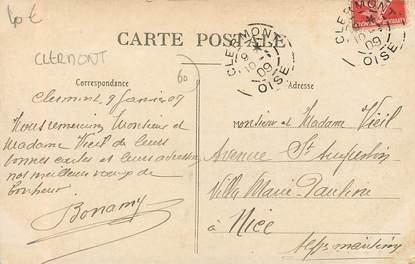 40 €
CLERMONT
CARTE POSTALE
60
CLERMONT
OISE
CLERMONT
OISE
Correspondance
Adresse
Clermont 9 Janvier 09
Nous remercions Monsieur et
Madame Vieil de leurs
bonnes cartes et leurs adressons
nos meilleurs vœux de
bonheur.
Bonamy
Monsieur et Madame Vieil
Avenue St Augustin
Villa Marie Pauline
à Nice
Alpes maritimes